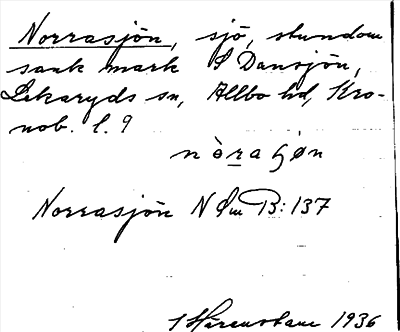 Norrasjön, sjö, stundom
sank mark S Dansjön,
Lekaryds sn, Allbo hd, Kro-
nob. l. 9
Norrasjön N Sm B: 137
1936